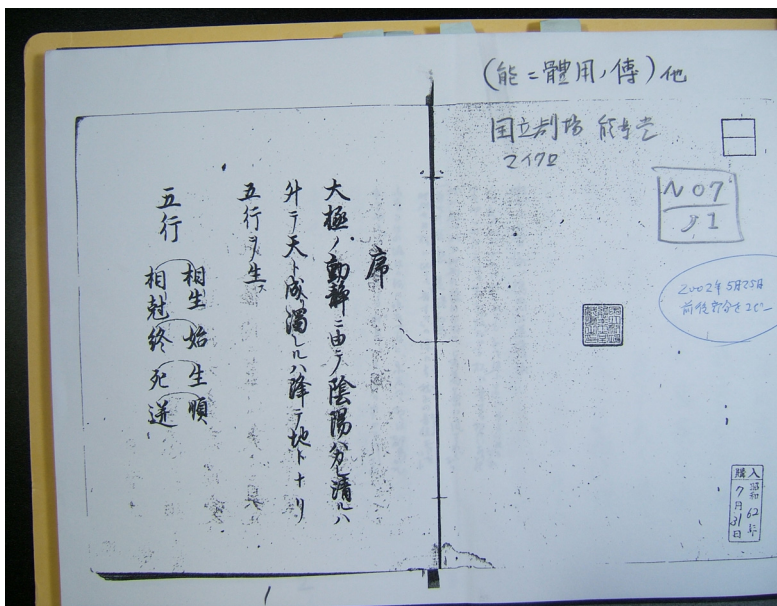 (能ニ體用ノ傳)他
国立劇場 能楽堂
マイクロ
N07
91
2002年5月25日
前後部分をコピー
購入
昭和62年
7月31日
席
大極ノ動静ニ由テ陰陽分レ清ルハ
舛テ天ト成濁レルハ降テ地トナリ
五行ヲ生ス
五行
相生始生順
相尅終死逆
1